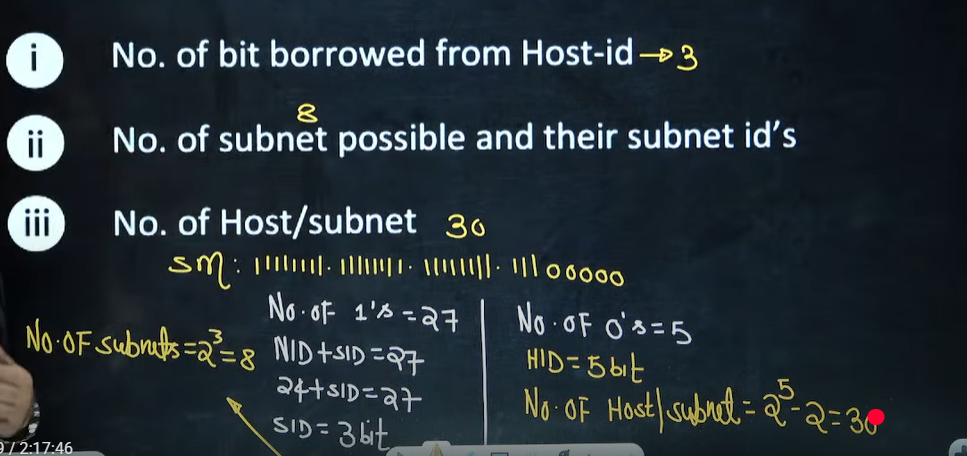 i No. of bit borrowed from Host-id → 3
8
ii No. of subnet possible and their subnet id's
iii No. of Host/subnet 30
SM: 11111111.11111111.11111111.11100000
No. of 1's = 27
NID+SID = 27
24+SID = 27
SID = 3 bit
No. OF subnets = 2³ = 8
No. OF 0's = 5
HID = 5 bit
No. OF Host/subnet = 2⁵ - 2 = 30
/ 2:17:46